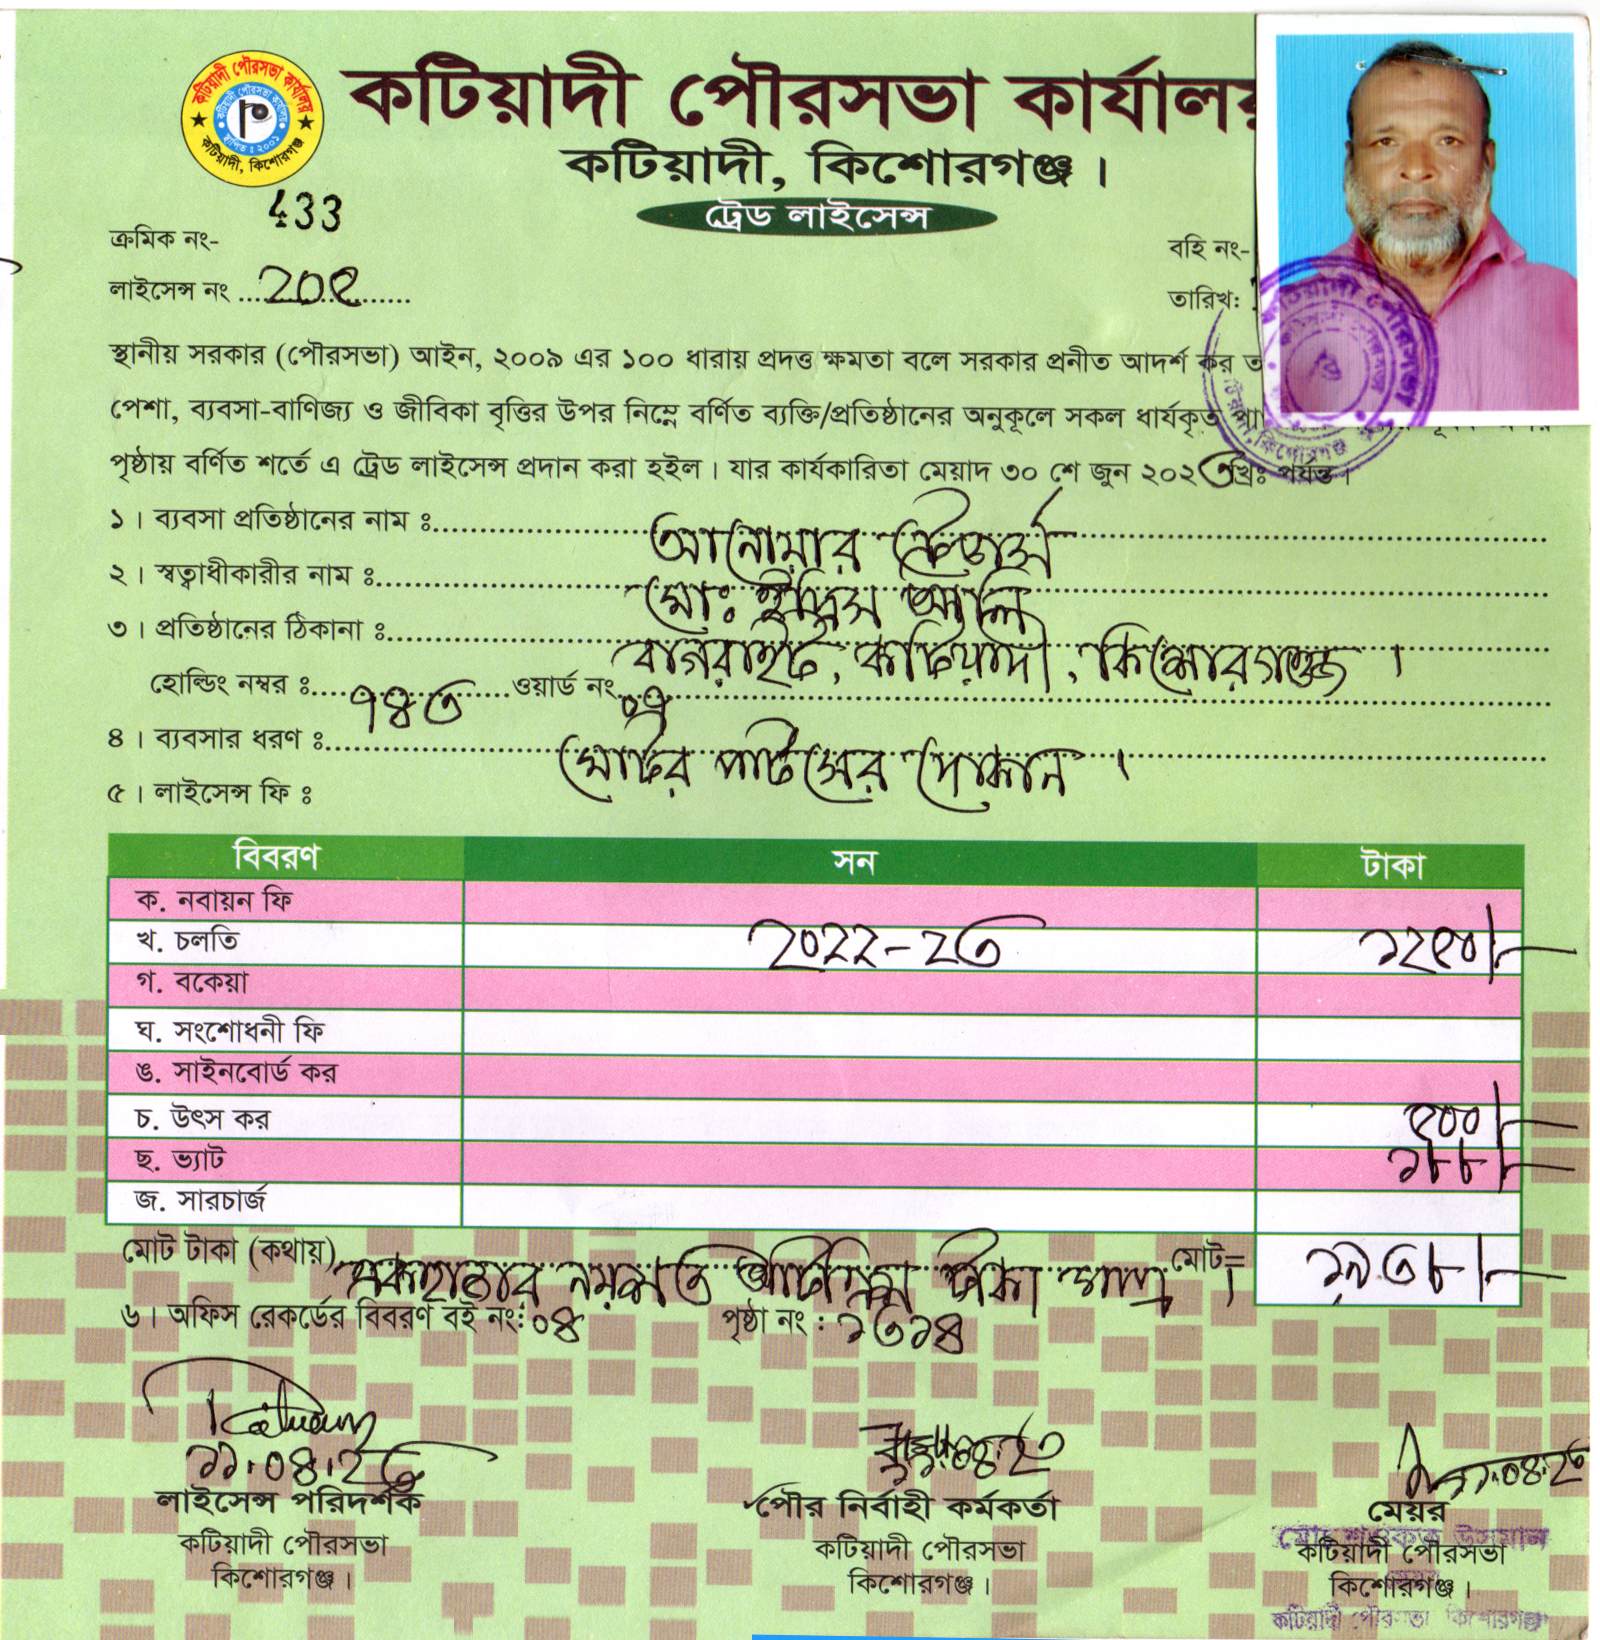 কটিয়াদী পৌরসভা কার্যালয়
কটিয়াদী পৌরসভা কার্যালয়
স্থাপিত : ২০০১
কটিয়াদী, কিশোরগঞ্জ
কটিয়াদী, কিশোরগঞ্জ।
ট্রেড লাইসেন্স
ক্রমিক নং- 433
বহি নং-
লাইসেন্স নং ২০৫
তারিখ:
স্থানীয় সরকার (পৌরসভা) আইন, ২০০৯ এর ১০০ ধারায় প্রদত্ত ক্ষমতা বলে সরকার প্রনীত আদর্শ কর ত
পেশা, ব্যবসা-বাণিজ্য ও জীবিকা বৃত্তির উপর নিম্নে বর্ণিত ব্যক্তি/প্রতিষ্ঠানের অনুকূলে সকল ধার্যকৃত পা
পৃষ্ঠায় বর্ণিত শর্তে এ ট্রেড লাইসেন্স প্রদান করা হইল। যার কার্যকারিতা মেয়াদ ৩০ শে জুন ২০২৩খ্রিঃ পর্যন্ত।
১। ব্যবসা প্রতিষ্ঠানের নাম ঃ আনোয়ার ট্রেডার্স
২। স্বত্বাধীকারীর নাম ঃ মোঃ ইদ্রিস আলি
৩। প্রতিষ্ঠানের ঠিকানা ঃ বাগরাইট, কটিয়াদী, কিশোরগঞ্জ।
হোল্ডিং নম্বর ঃ ৭৪৩ ওয়ার্ড নং
৪। ব্যবসার ধরণ ঃ মোটর পার্টসের দোকান।
৫। লাইসেন্স ফি ঃ
বিবরণ সন টাকা
ক. নবায়ন ফি
খ. চলতি ২০২২-২৩ ১২৫০/-
গ. বকেয়া
ঘ. সংশোধনী ফি
ঙ. সাইনবোর্ড কর
চ. উৎস কর ৫০০/-
ছ. ভ্যাট ১৮৮/-
জ. সারচার্জ
মোট টাকা (কথায়) একহাজার নয়শত আটত্রিশ টাকা মাত্র। মোট= ১৯৩৮/-
৬। অফিস রেকর্ডের বিবরণ বই নং: ০৪ পৃষ্ঠা নং : ১৩১৪
১১.০৪.২৩
লাইসেন্স পরিদর্শক পৌর নির্বাহী কর্মকর্তা মেয়র
কটিয়াদী পৌরসভা কটিয়াদী পৌরসভা কটিয়াদী পৌরসভা
কিশোরগঞ্জ। কিশোরগঞ্জ। কিশোরগঞ্জ।
কটিয়াদী পৌরসভা কিশোরগঞ্জ